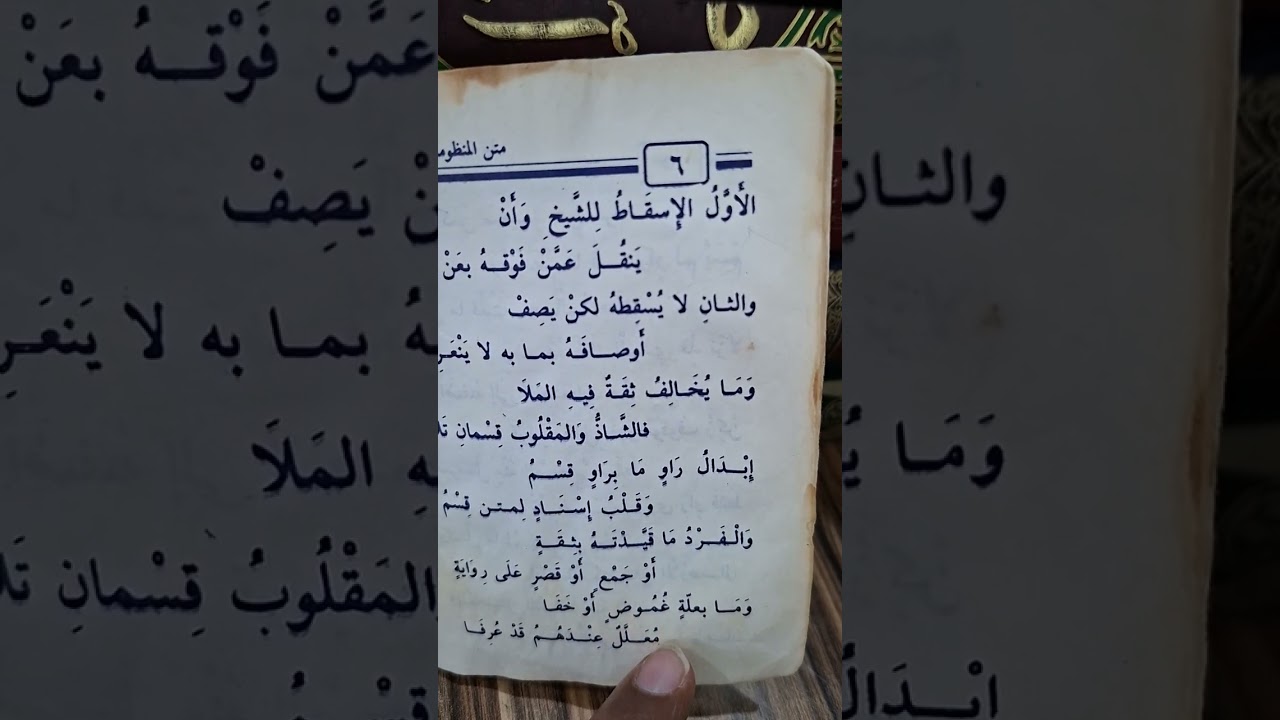 متن المنظوم
٦
الأَوَّلُ الإِسقَاطُ لِلشَّيخِ وَأَنْ
يَنقُلَ عَمَّنْ فَوْقهُ بعَنْ
والثانِ لا يُسْقِطهُ لكنْ يَصِفْ
أَوصافَهُ بما به لا يَنْعَرِ
وَمَا يُخَالِفُ ثِقَةٌ فِيهِ المَلَا
فالشَّاذُّ وَالمَقْلُوبُ قِسْمانِ تَلَا
إِبْدَالُ رَاوٍ مَا بِرَاوٍ قِسْمُ
وَقَلْبُ إِسْنَادٍ لِمتن قِسْمُ
وَالْفَرْدُ مَا قَيَّدْتَهُ بِثِقَةٍ
أَوْ جَمْعٍ أَوْ قَصْرٍ عَلَى رِوَايَةٍ
وَمَا بعلّةٍ غُمُوضٍ أَوْ خَفَا
مُعَلَّلٌ عِنْدَهُمُ قَدْ عُرِفَا